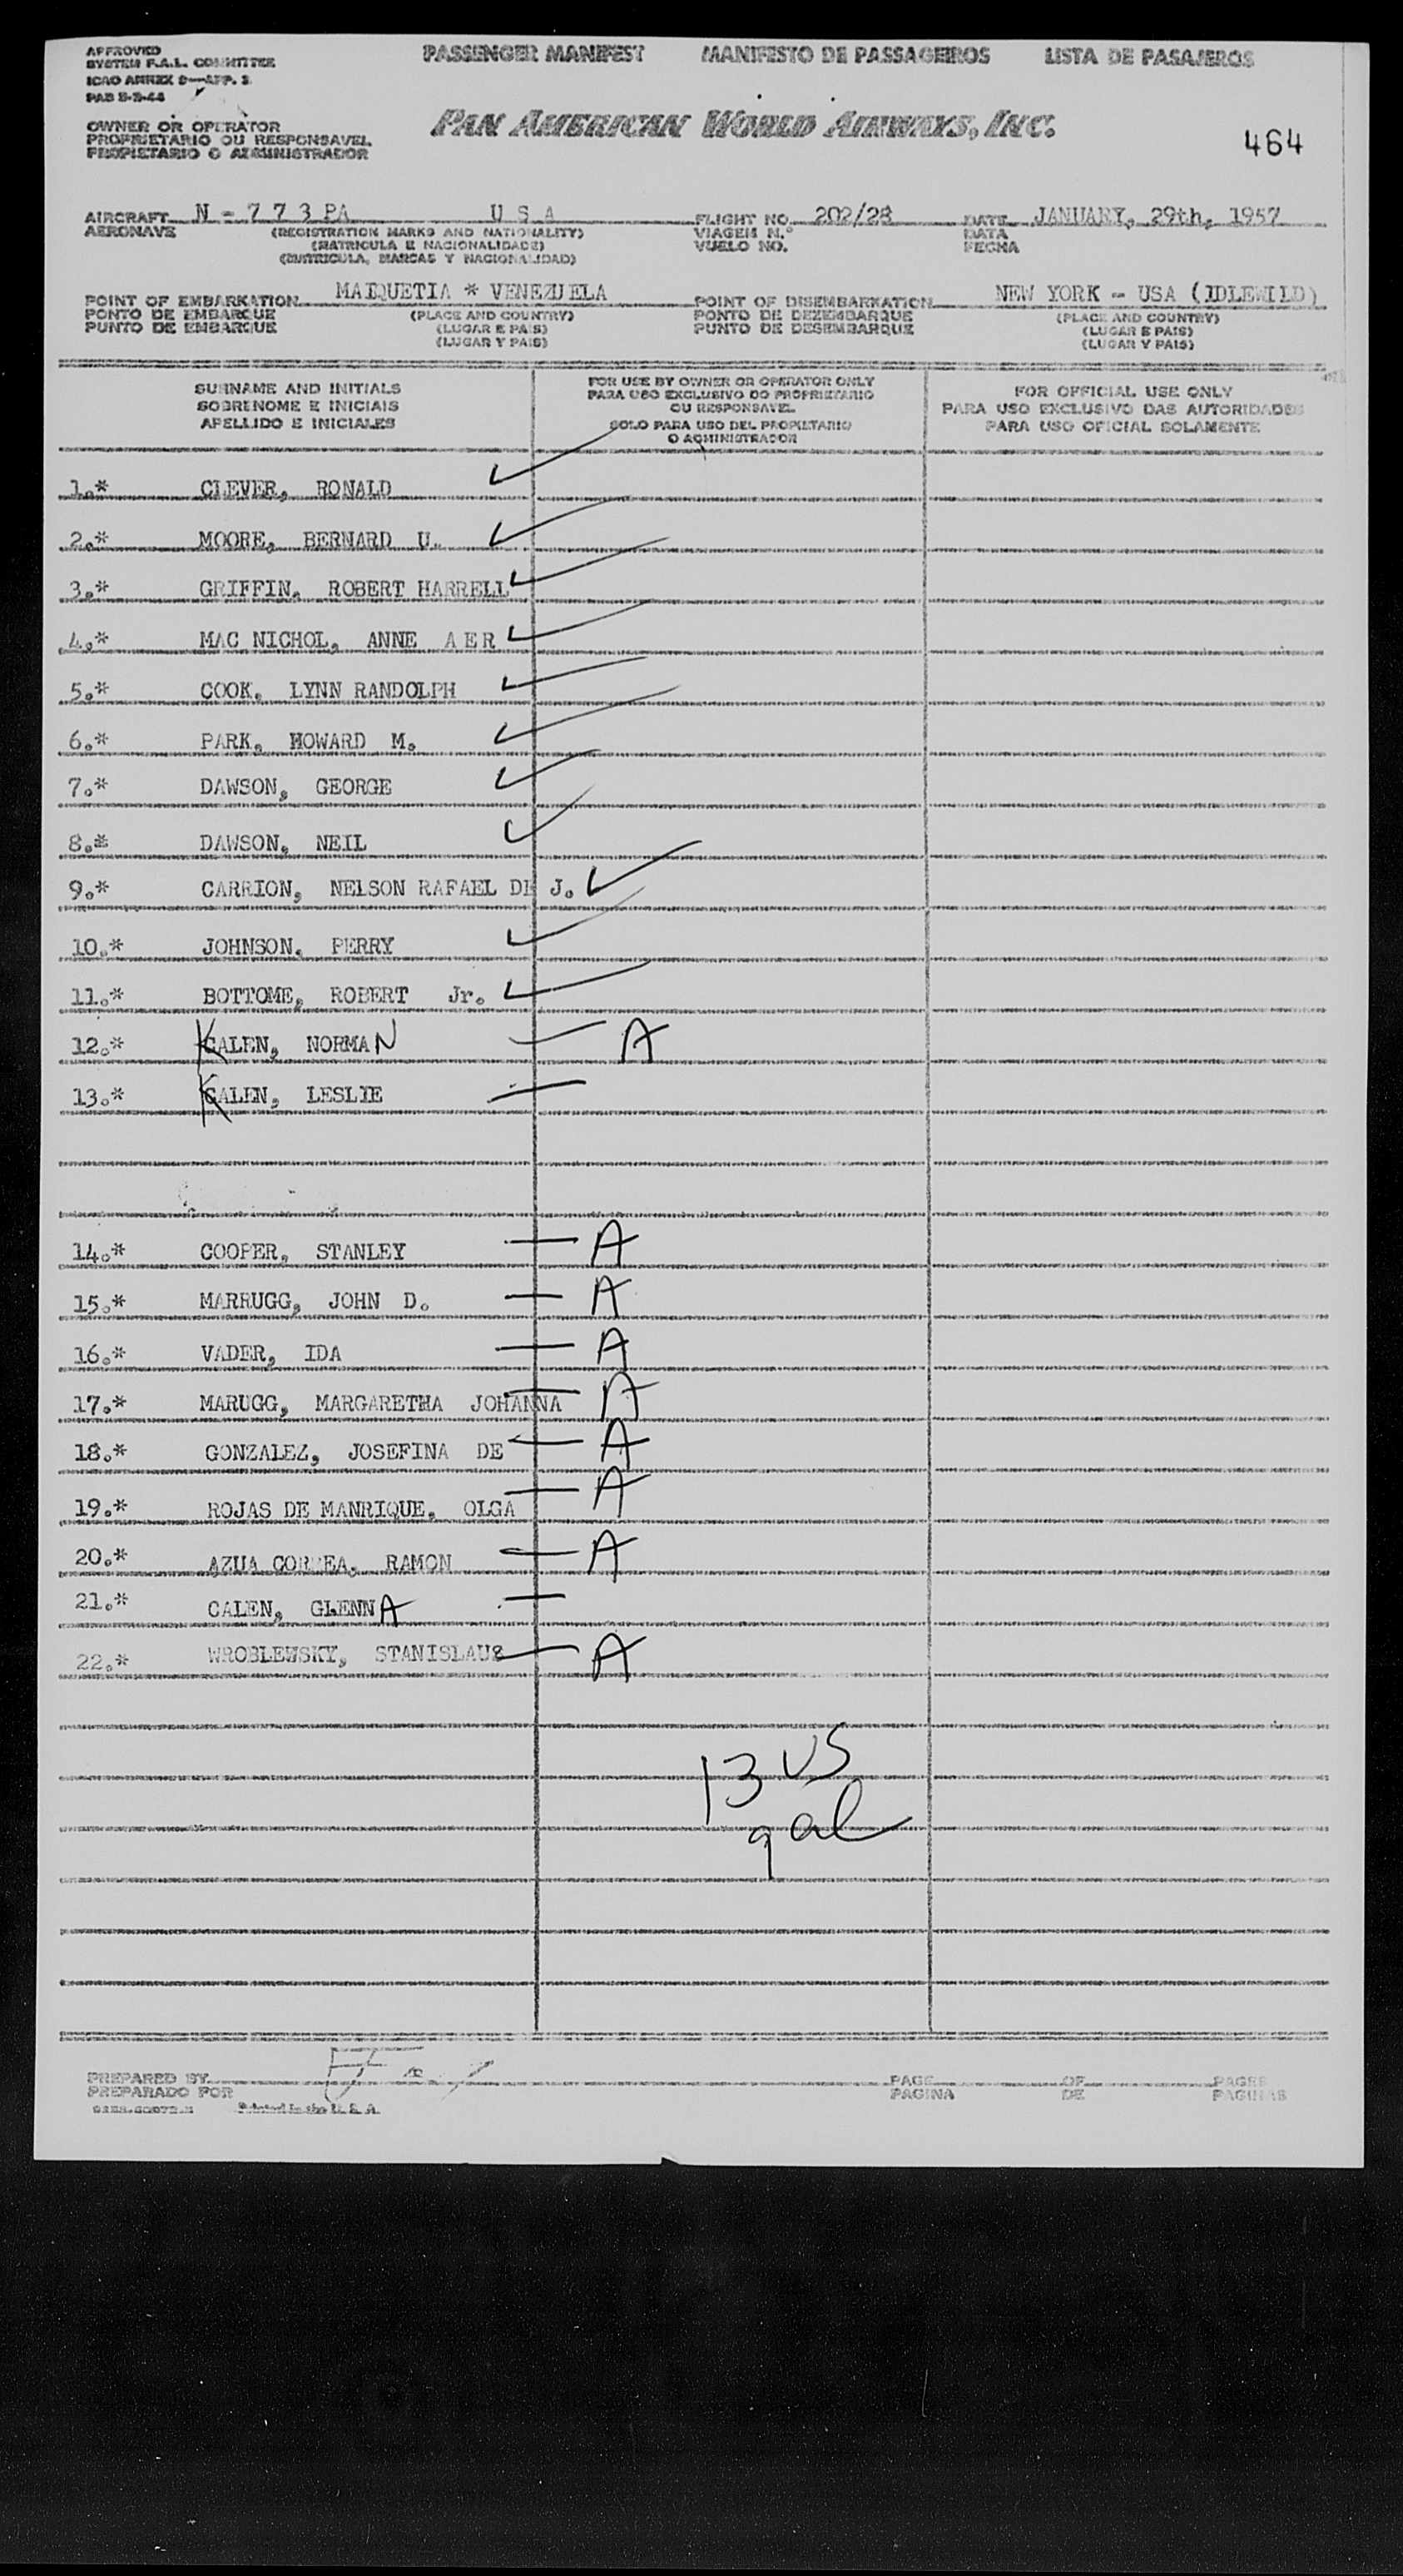 APPROVED
SYSTEM F.A.L. COMMITTEE
ICAO ANNEX 9—APP. 3
PASSENGER MANIFEST MANIFESTO DE PASSAGEIROS LISTA DE PASAJEROS
OWNER OR OPERATOR
PROPRIETARIO OU RESPONSAVEL
PROPIETARIO O ADMINISTRADOR
PAN AMERICAN WORLD AIRWAYS, INC.
464
AIRCRAFT N-773PA USA FLIGHT NO. 202/28 DATE JANUARY, 29th, 1957
AERONAVE (REGISTRATION MARKS AND NATIONALITY) VIAGEM N.° DATA
(MATRICULA E NACIONALIDADE) VUELO NO. FECHA
(MATRICULA, MARCAS Y NACIONALIDAD)
POINT OF EMBARKATION MAIQUETIA * VENEZUELA POINT OF DISEMBARKATION NEW YORK - USA (IDLEWILD)
PONTO DE EMBARQUE (PLACE AND COUNTRY) PONTO DE DEZEMBARQUE (PLACE AND COUNTRY)
PUNTO DE EMBARQUE (LUGAR E PAIS) PUNTO DE DESEMBARQUE (LUGAR E PAIS)
(LUGAR Y PAIS) (LUGAR Y PAIS)
SURNAME AND INITIALS
SOBRENOME E INICIAIS
APELLIDO E INICIALES
FOR USE BY OWNER OR OPERATOR ONLY
PARA USO EXCLUSIVO DO PROPRIETARIO
OU RESPONSAVEL
SOLO PARA USO DEL PROPIETARIO
O ADMINISTRADOR
FOR OFFICIAL USE ONLY
PARA USO EXCLUSIVO DAS AUTORIDADES
PARA USO OFICIAL SOLAMENTE
1.* CLEVER, RONALD ✓
2.* MOORE, BERNARD U. ✓
3.* GRIFFIN, ROBERT HARRELL ✓
4.* MAC NICHOL, ANNE AER ✓
5.* COOK, LYNN RANDOLPH ✓
6.* PARK, HOWARD M. ✓
7.* DAWSON, GEORGE ✓
8.* DAWSON, NEIL ✓
9.* CARRION, NELSON RAFAEL DE J. ✓
10.* JOHNSON, PERRY ✓
11.* BOTTOME, ROBERT Jr. ✓
12.* KALEN, NORMAN — A
13.* KALEN, LESLIE —
14.* COOPER, STANLEY — A
15.* MARRUGG, JOHN D. — A
16.* VADER, IDA — A
17.* MARUGG, MARGARETHA JOHANNA — A
18.* GONZALEZ, JOSEFINA DE — A
19.* ROJAS DE MANRIQUE, OLGA — A
20.* AZUA CORREA, RAMON — A
21.* CALEN, GLENNA —
22.* WROBLEWSKY, STANISLAUS — A
13 US
9 al
PREPARED BY PAGE OF PAGES
PREPARADO POR PAGINA DE PAGINAS
Printed in the U. S. A.